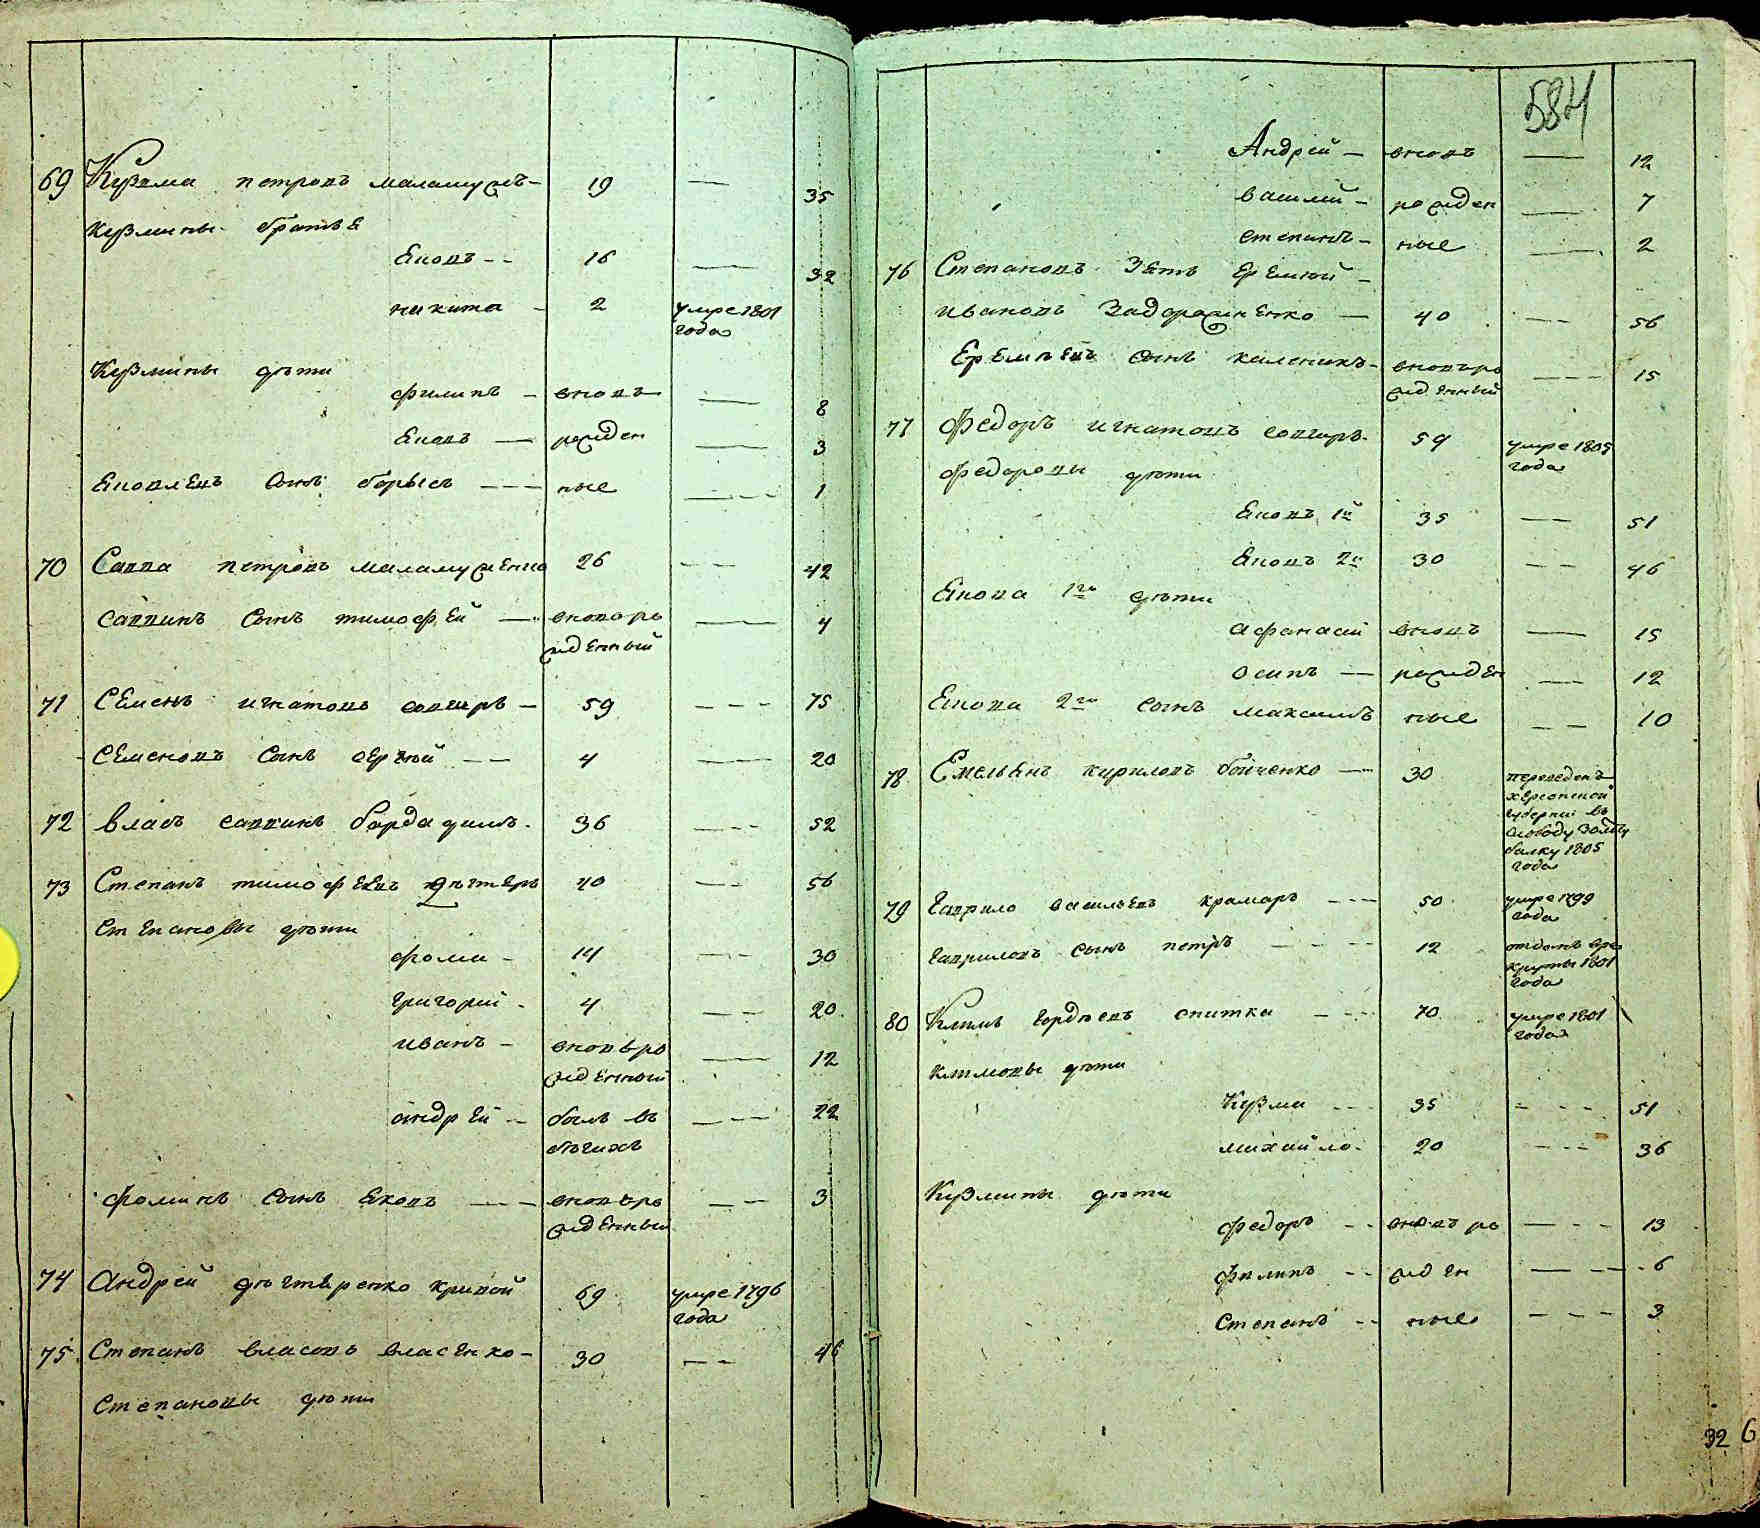 69 Кузма петровъ маламужъ - 19 — 35
Кузмины братья
Яковъ - - 16 — 32
никита - 2 умре 1801 года
Кузмины дѣти
филипъ - вновь — 8
Яковъ — рожден — 3
Яковлевъ сынъ борысъ - - - ные — 1
70 Савва петровъ маламуженко 26 — 42
саввинъ сынъ тимофей — вновьро — 4
жденный
71 Семенъ игнатовъ - 59 - - - 75
семеновъ сынъ сергѣй - - 4 — 20
72 власъ саввинъ - 36 - - - 52
73 Степанъ тимофеевъ дѣгтяръ 40 - - 56
Степановы дѣти
фома - 14 - - 30
григорий - 4 - - 20
иванъ - вновьро — 12
жденный
андрей - - былъ въ - - - 22
бѣгахъ
фоминъ сынъ Яковъ - - - вновьро - - 3
жденный
74 Андрей дѣгтяренко кривой 69 умре 1796
года
75 Степанъ власовъ власенко - 30 - - 46
Степановы дѣти
584
Андрей — вновь — 12
василий - рожден — 7
степанъ - ные — 2
76 Степановъ зять еремѣй -
ивановъ Задорожненко — 40 - - - 56
Еремѣевъ сынъ каленикъ - вновьро - - - 15
жденный
77 федоръ игнатовъ - 59 умре 1805
года
федоровы дѣти
Яковъ 1й 35 — 51
Яковъ 2й 30 - - 46
Якова 1го дѣти
афанасий вновь — 15
осипъ — рожден - - 12
Якова 2го сынъ максимъ ные - - 10
78 Емельянъ кириловъ бойченко — 30 переведенъ
херсонской
губернии въ
слободу Золоту
балку 1805
года
79 гаврило васильевъ крамаръ - - - 50 умре 1799
года
гавриловъ сынъ петръ - - - - 12 отданъ вре
круты 1801
года
80 Климъ гордѣевъ спитка - - - 70 умре 1801
года
климовы дѣти
Кузма - - - 35 - - - - 51
михайло - 20 - - - - 36
Кузмины дѣти
федоръ - - вновь ро — - - 13
филипъ - - жден — - - 6
Степанъ - - ные - - - - 3
32 6